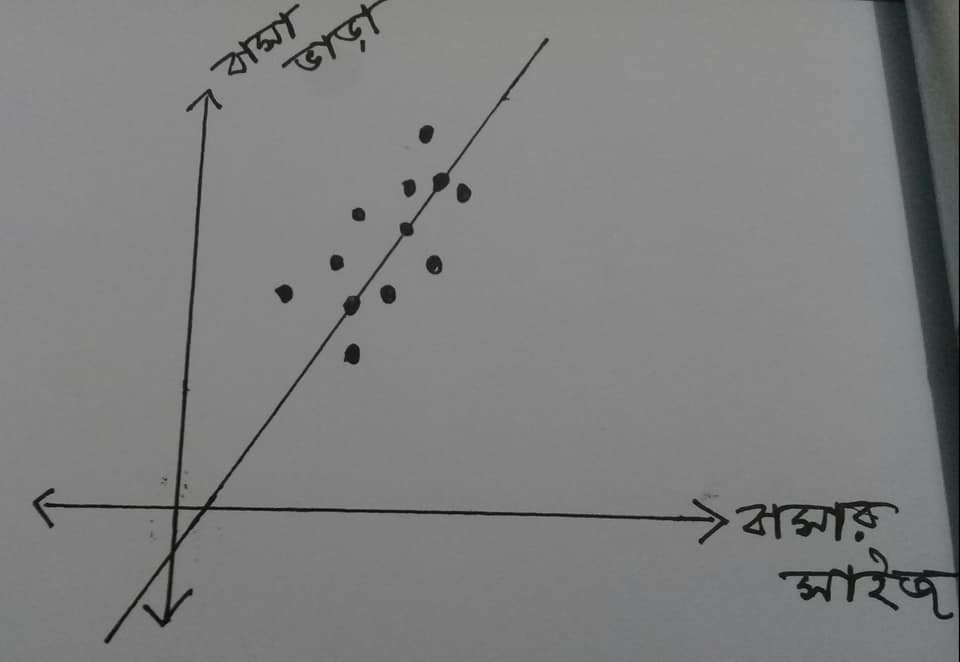 বাসা
ভাড়া
বাসার
সাইজ